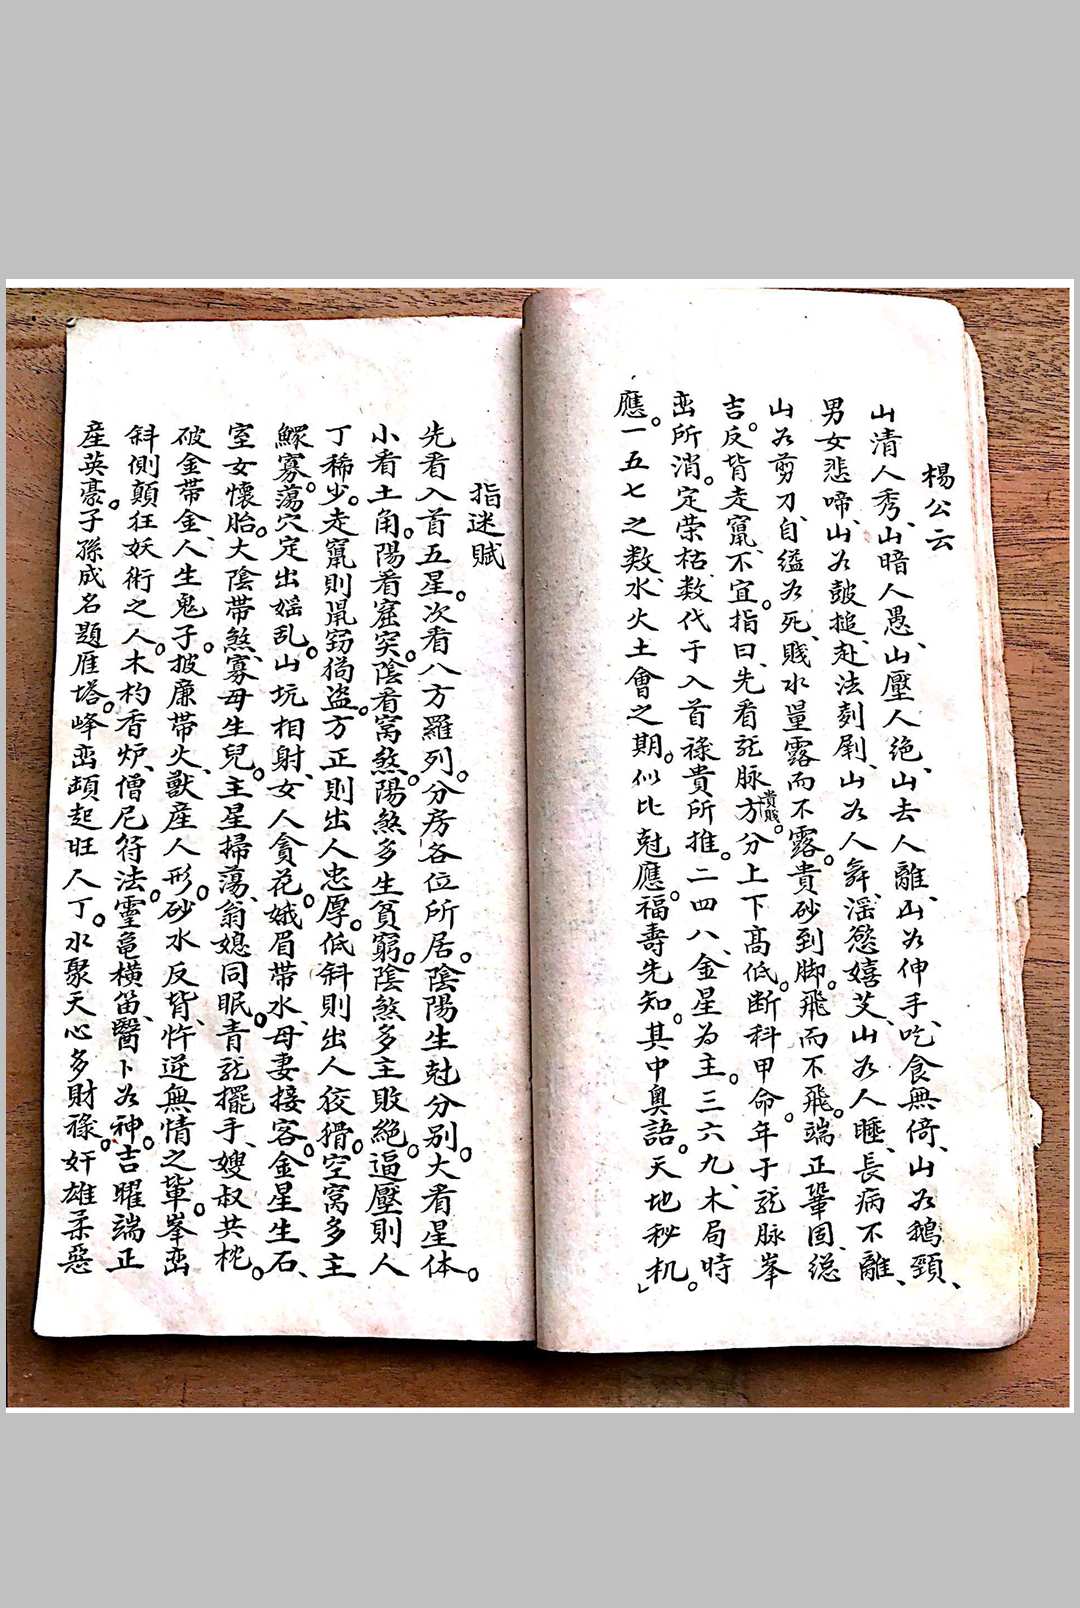 楊公云
山清人秀、山暗人愚、山壓人绝、山去人離、山为伸手、吃食無倚、山为鵝頸、
男女悲啼、山为鼓搥、赴法刻剧、山为人舞、滛慾嬉茭、山为人睡、長病不離、
山为剪刀、自缢为死、賤水量露而不露。貴砂到脚。飛而不飛。端正鞏固、縂
吉。反背走竄、不宜。指曰、先看龙脉方分貴賤。上下高低。断科甲命。年于龙脉峯
峦所消。定荣枯数、代于入首禄貴所推。二四八、金星为主。三六九、木局時
應。一五七之数、水火土會之期。似比尅應。福壽先知。其中奥語。天地秘机。
指迷賦
先看入首五星。次看八方羅列。分房各位所居。陰陽生尅分别。大看星体。
小看土角。陽看窟突。陰看窩煞。陽煞多生貧窮。陰煞多主敗絶。逼壓則人
丁稀少。走竄則鼠窃猫盗。方正則出人忠厚。低斜則出人狡猾。空窩多主
鰥寡。蕩穴定出婬乱。山坑相射、女人貪花。娥眉帶水、母妻接客。金星生石、
室女懷胎。大陰帶煞、寡母生兒。主星掃蕩、翁媳同眠。青龙擺手、嫂叔共枕。
破金帶金、人生鬼子。披廉帶火、獸産人形。砂水反背、忤逆無情之輩。峯峦
斜側顛狂妖術之人。木杓香炉、僧尼符法。靈亀横笛、醫卜为神。吉曜端正
産英豪。子孫成名題雁塔。峰峦頓起旺人丁。水聚天心多財禄。奸雄柔惡